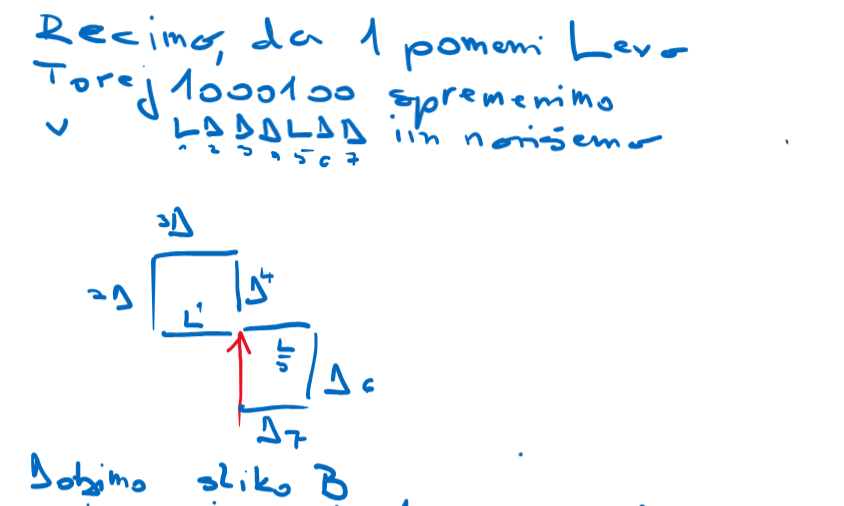 Recimo, da 1 pomeni Levo
Torej 1000100 spremenimo
v LDDDLDD iin narišemo
1 2 3 4 5 6 7
3D
2D
D4
L1
L5
D6
D7
Dobimo sliko B